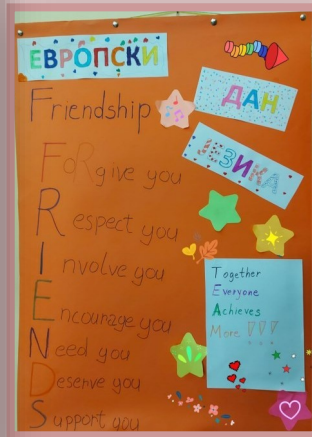 ЕВРОПСКИ
ДАН
ЈЕЗИКА
Friendship
FoRgive you
Respect you
Involve you
Encourage you
Need you
Deserve you
Support you
Together
Everyone
Achieves
More !!!